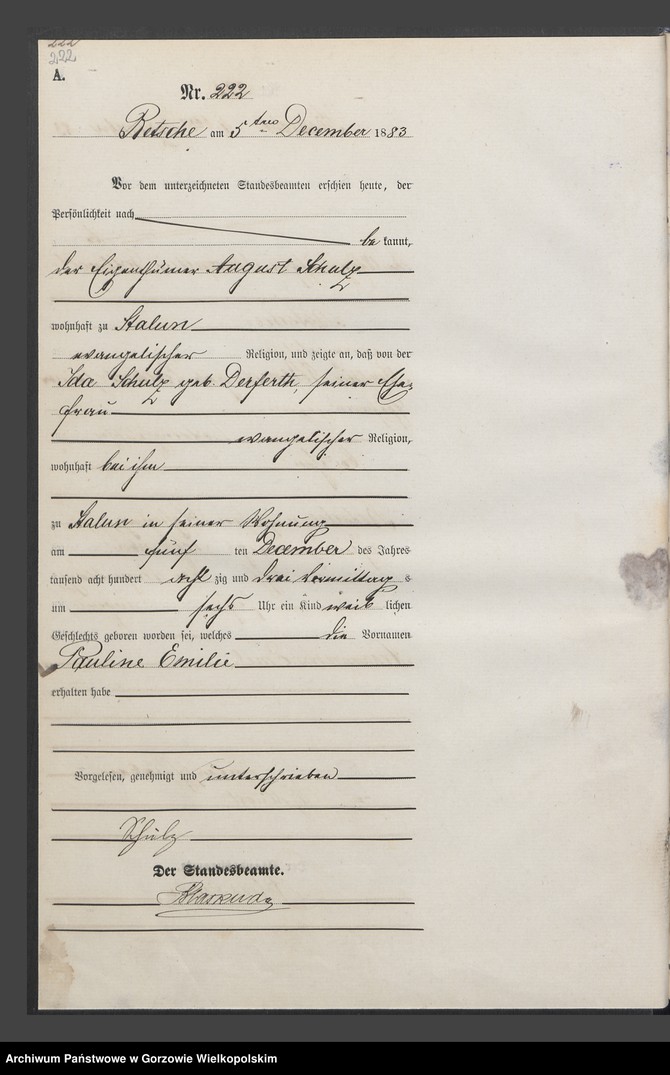 222
222
A.
Nr. 222
Betsche am 5ten December 1883
Vor dem unterzeichneten Standesbeamten erschien heute, der
Persönlichkeit nach
be kannt,
der Eigenthümer August Schulz
wohnhaft zu Stalun
evangelischer Religion, und zeigte an, daß von der
Ida Schulz geb. Derferth, seiner Ehe-
frau
evangelischer Religion,
wohnhaft bei ihm
zu Stalun in seiner Wohnung
am fünf ten December des Jahres
tausend acht hundert acht zig und drei Vormittag s
um sechs Uhr ein Kind weib lichen
Geschlechts geboren worden sei, welches die Vornamen
Pauline Emilie
erhalten habe
Vorgelesen, genehmigt und unterschrieben
Schulz
Der Standesbeamte.
Archiwum Państwowe w Gorzowie Wielkopolskim